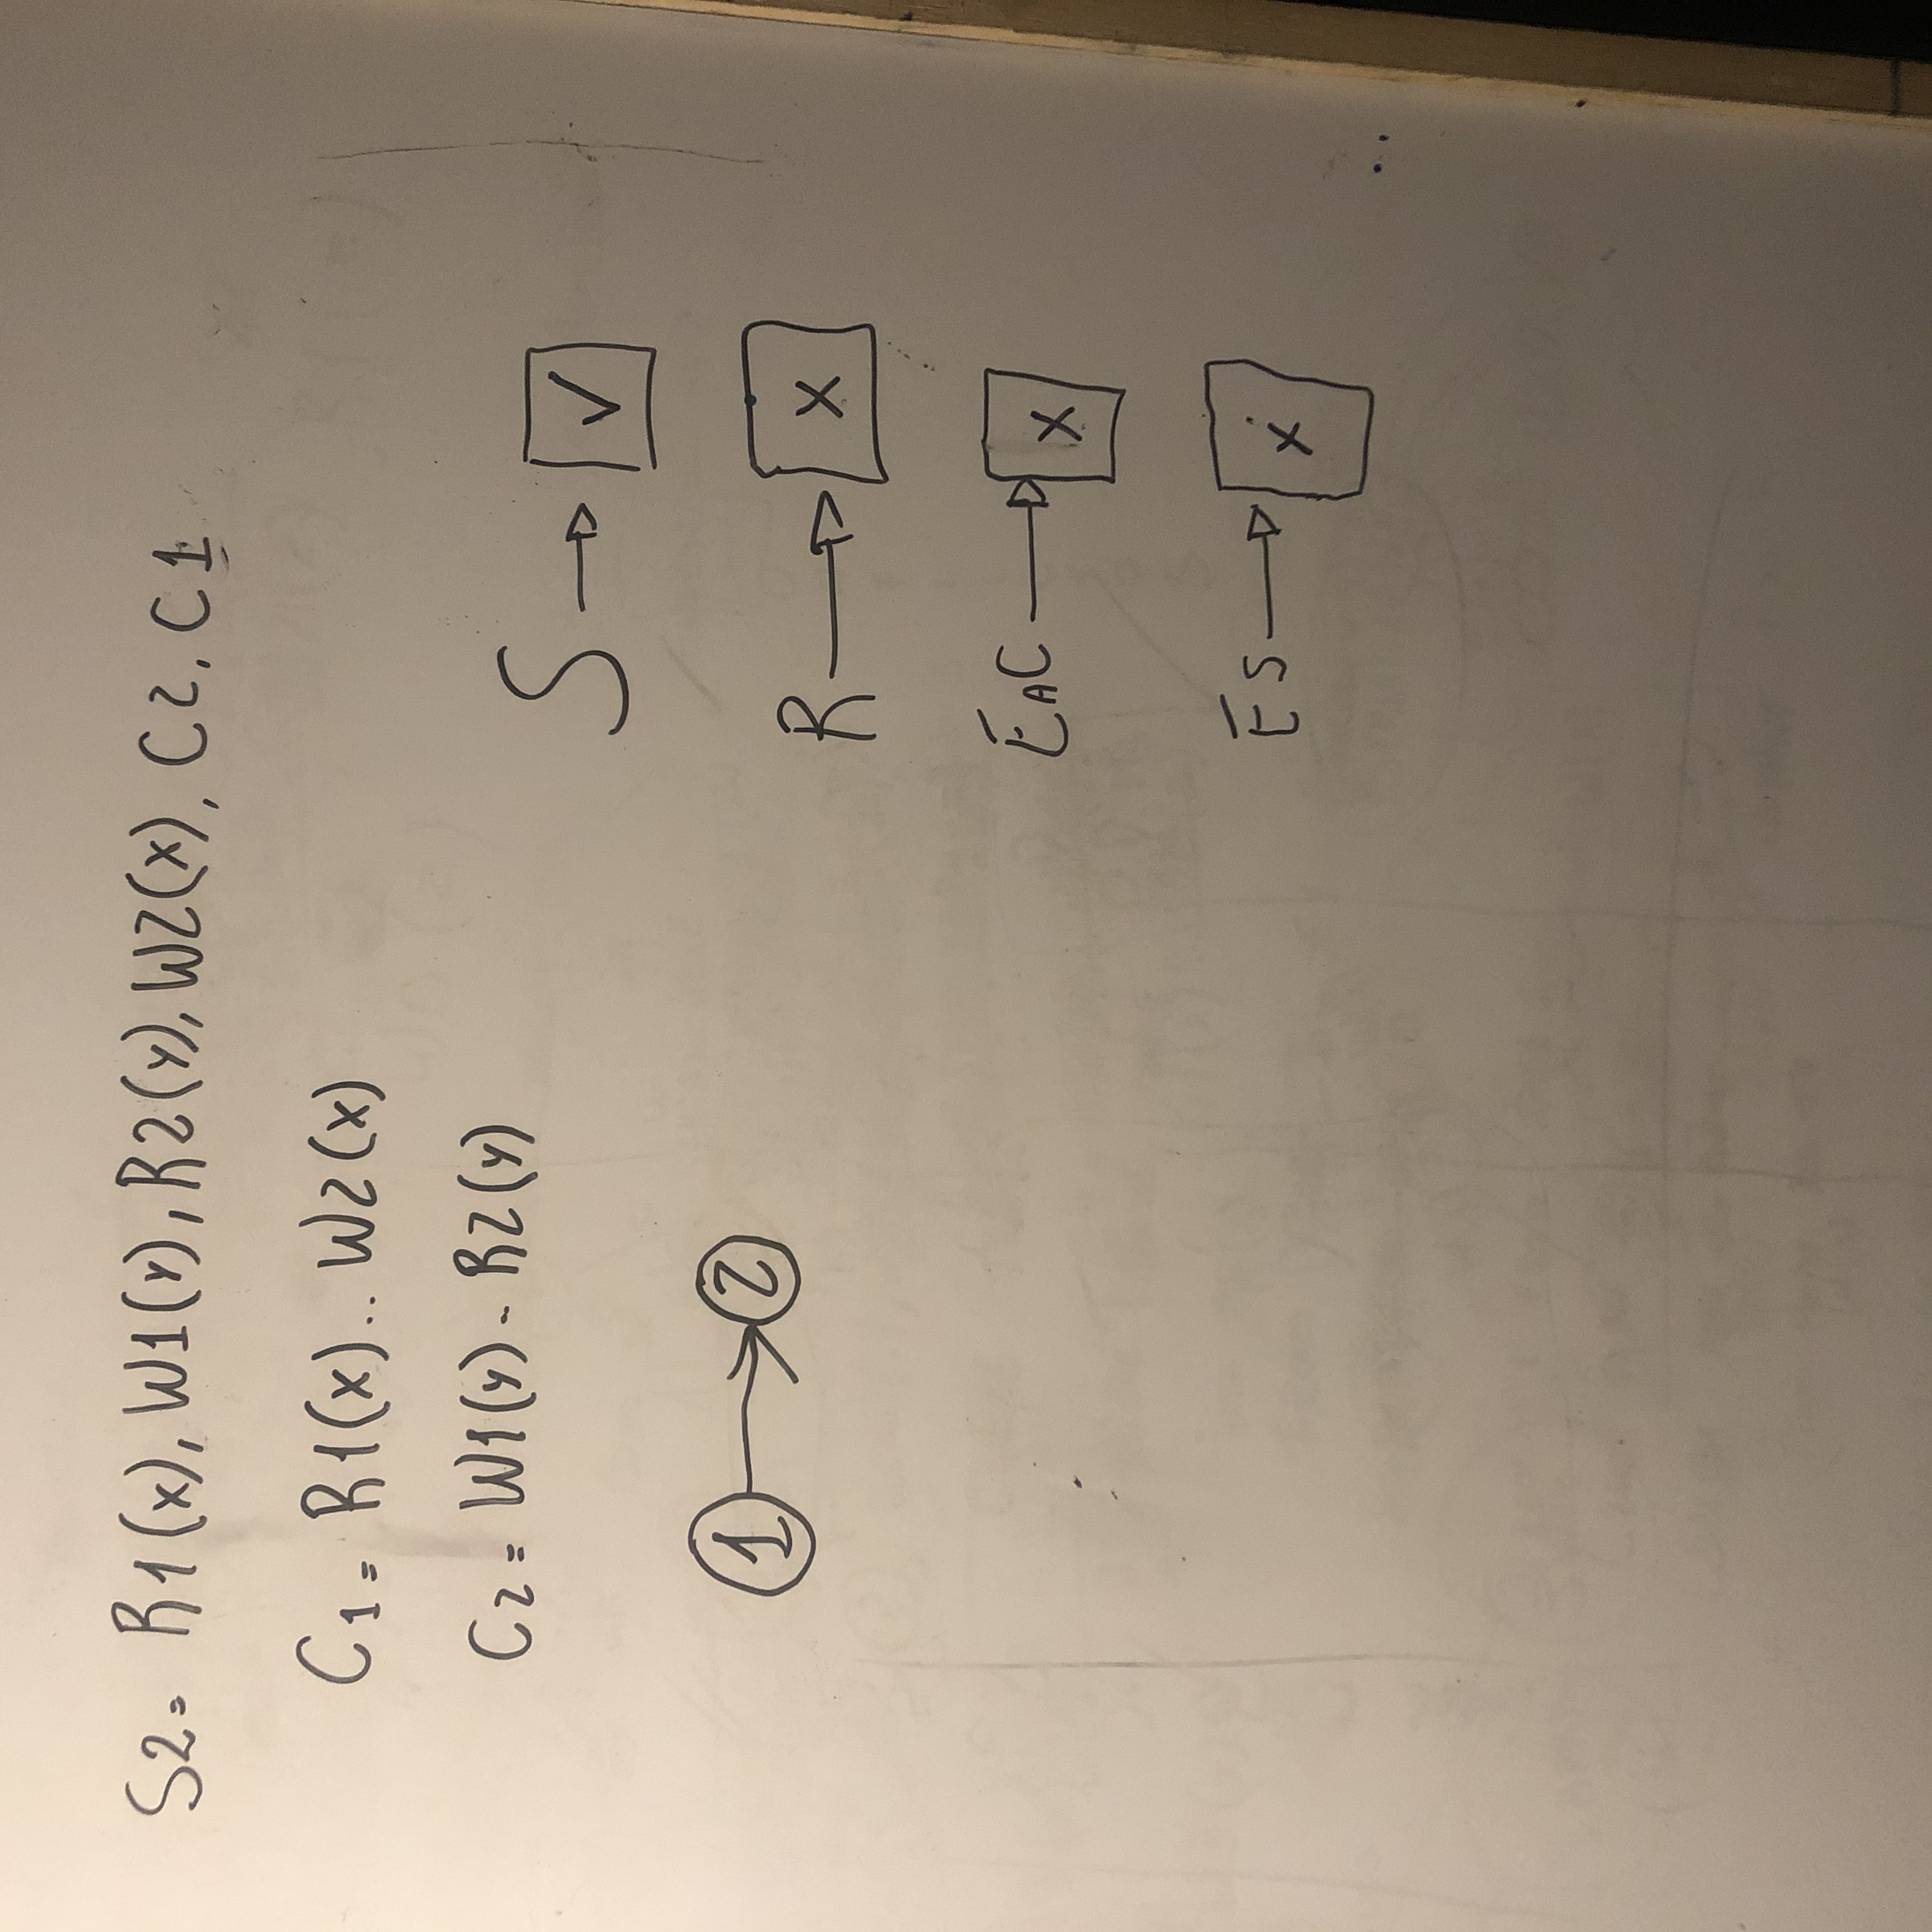 S2= R1(x), W1(y), R2(y), W2(x), C2, C1
C1= R1(x).. W2(x)
C2= W1(y)- R2(y)
S → ✓
1 → 2
R → X
EAC → X
ES → X